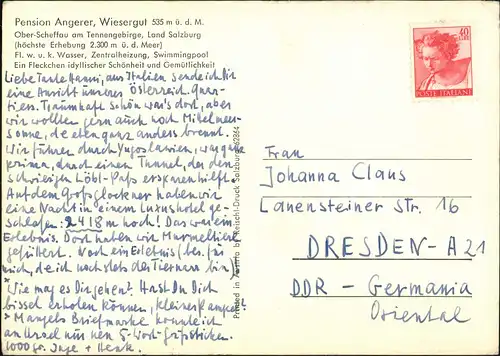 Pension Angerer, Wiesergut 535 m ü. d. M.
Ober-Scheffau am Tennengebirge, Land Salzburg
(höchste Erhebung 2.300 m ü. d. Meer)
Fl. w. u. k. Wasser, Zentralheizung, Swimmingpool
Ein Fleckchen idyllischer Schönheit und Gemütlichkeit
Liebe Tante Hanni, aus Italien sende ich Dir
eine Ansicht unseres Österreich. Quar-
tiers. Traumhaft schön war's dort, aber
wir wollten gern auch noch Mittelmeer-
sonne, die eben ganz anders brennt.
Wir fuhren durch Yugoslawien, was ganz
prima, durch einen Tunnel, der den
schwierigen Löbl-Paß ersparen hilft.
Auf dem Großglockner haben wir
eine Nacht in einem Luxushotel ge-
schlafen: 2418 m hoch! Das war ein
Erlebnis. Dort haben wir Murmeltiere
gefüttert. Noch ein Erlebnis (bes. für
mich, die ich nach stets der Tiernarr bin
Wie mag es Dir gehen? Hast Du Dich
bissel erholen können, kleiner
* Mangels Briefmarke konnte ich
an Ursel nur nen 5-Wort-Gruß schicken.
1000 gr. Inge + Henk.
Printed in Austria by Kreischl-Druck Salzburg 62864
40
POSTE ITALIANE
Frau
Johanna Claus
Lauensteiner Str. 16
DRESDEN-A21
DDR - Germania
Oriental